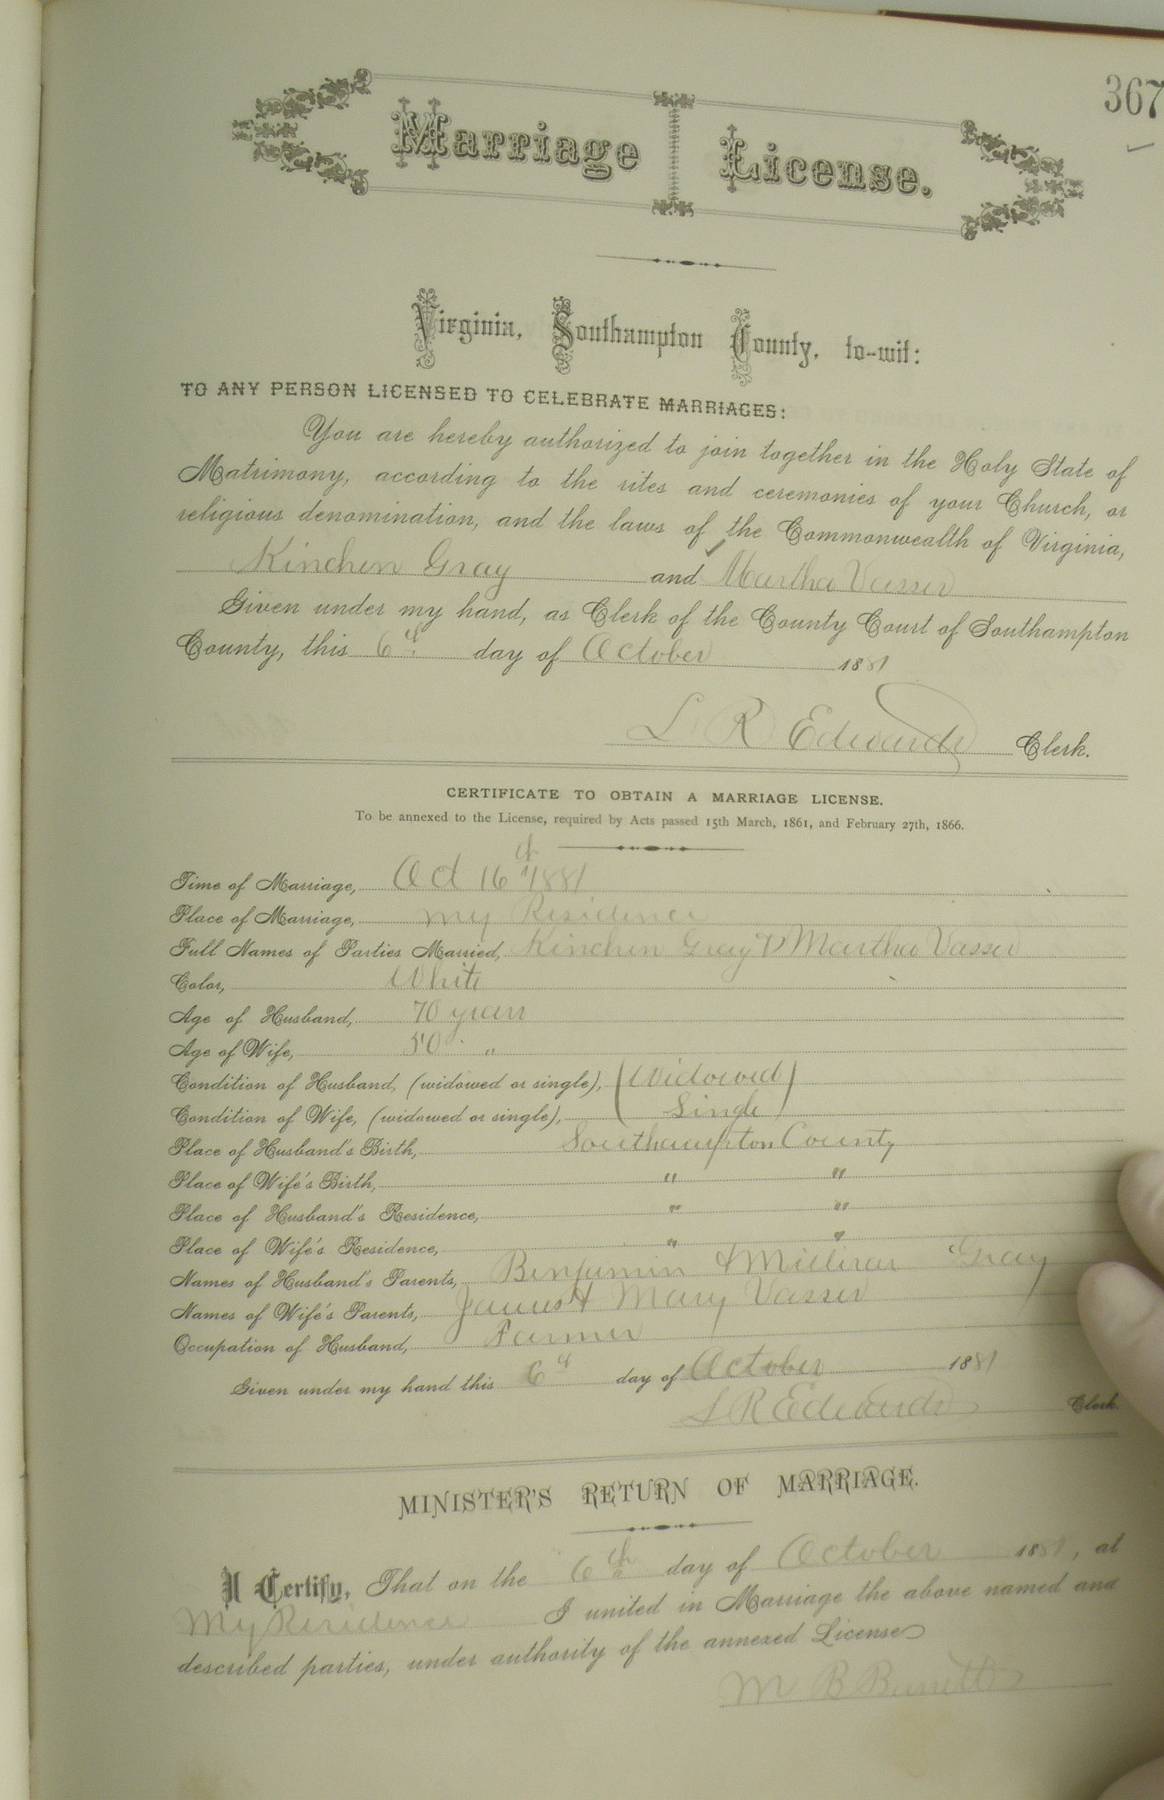 367
Marriage License.
Virginia, Southampton County, to-wit:
TO ANY PERSON LICENSED TO CELEBRATE MARRIAGES:
You are hereby authorized to join together in the Holy State of
Matrimony, according to the rites and ceremonies of your Church, or
religious denomination, and the laws of the Commonwealth of Virginia,
Kinchen Gray and Martha Vasser
Given under my hand, as Clerk of the County Court of Southampton
County, this 6th day of October 1881
L R Edwards Clerk.
CERTIFICATE TO OBTAIN A MARRIAGE LICENSE.
To be annexed to the License, required by Acts passed 15th March, 1861, and February 27th, 1866.
Time of Marriage, Oct 16th 1881
Place of Marriage, my Residence
Full Names of Parties Married, Kinchen Gray & Martha Vasser
Color, White
Age of Husband, 70 years
Age of Wife, 50 "
Condition of Husband, (widowed or single), Widowed
Condition of Wife, (widowed or single), Single
Place of Husband's Birth, Southampton County
Place of Wife's Birth, " "
Place of Husband's Residence, " "
Place of Wife's Residence, " "
Names of Husband's Parents, Benjamin & Gray
Names of Wife's Parents, James & Mary Vasser
Occupation of Husband, Farmer
Given under my hand this 6th day of October 1881
L R Edwards Clerk.
MINISTER'S RETURN OF MARRIAGE.
I Certify, That on the 6th day of October 1881, at
My Residence I united in Marriage the above named and
described parties, under authority of the annexed License
M B Barrett